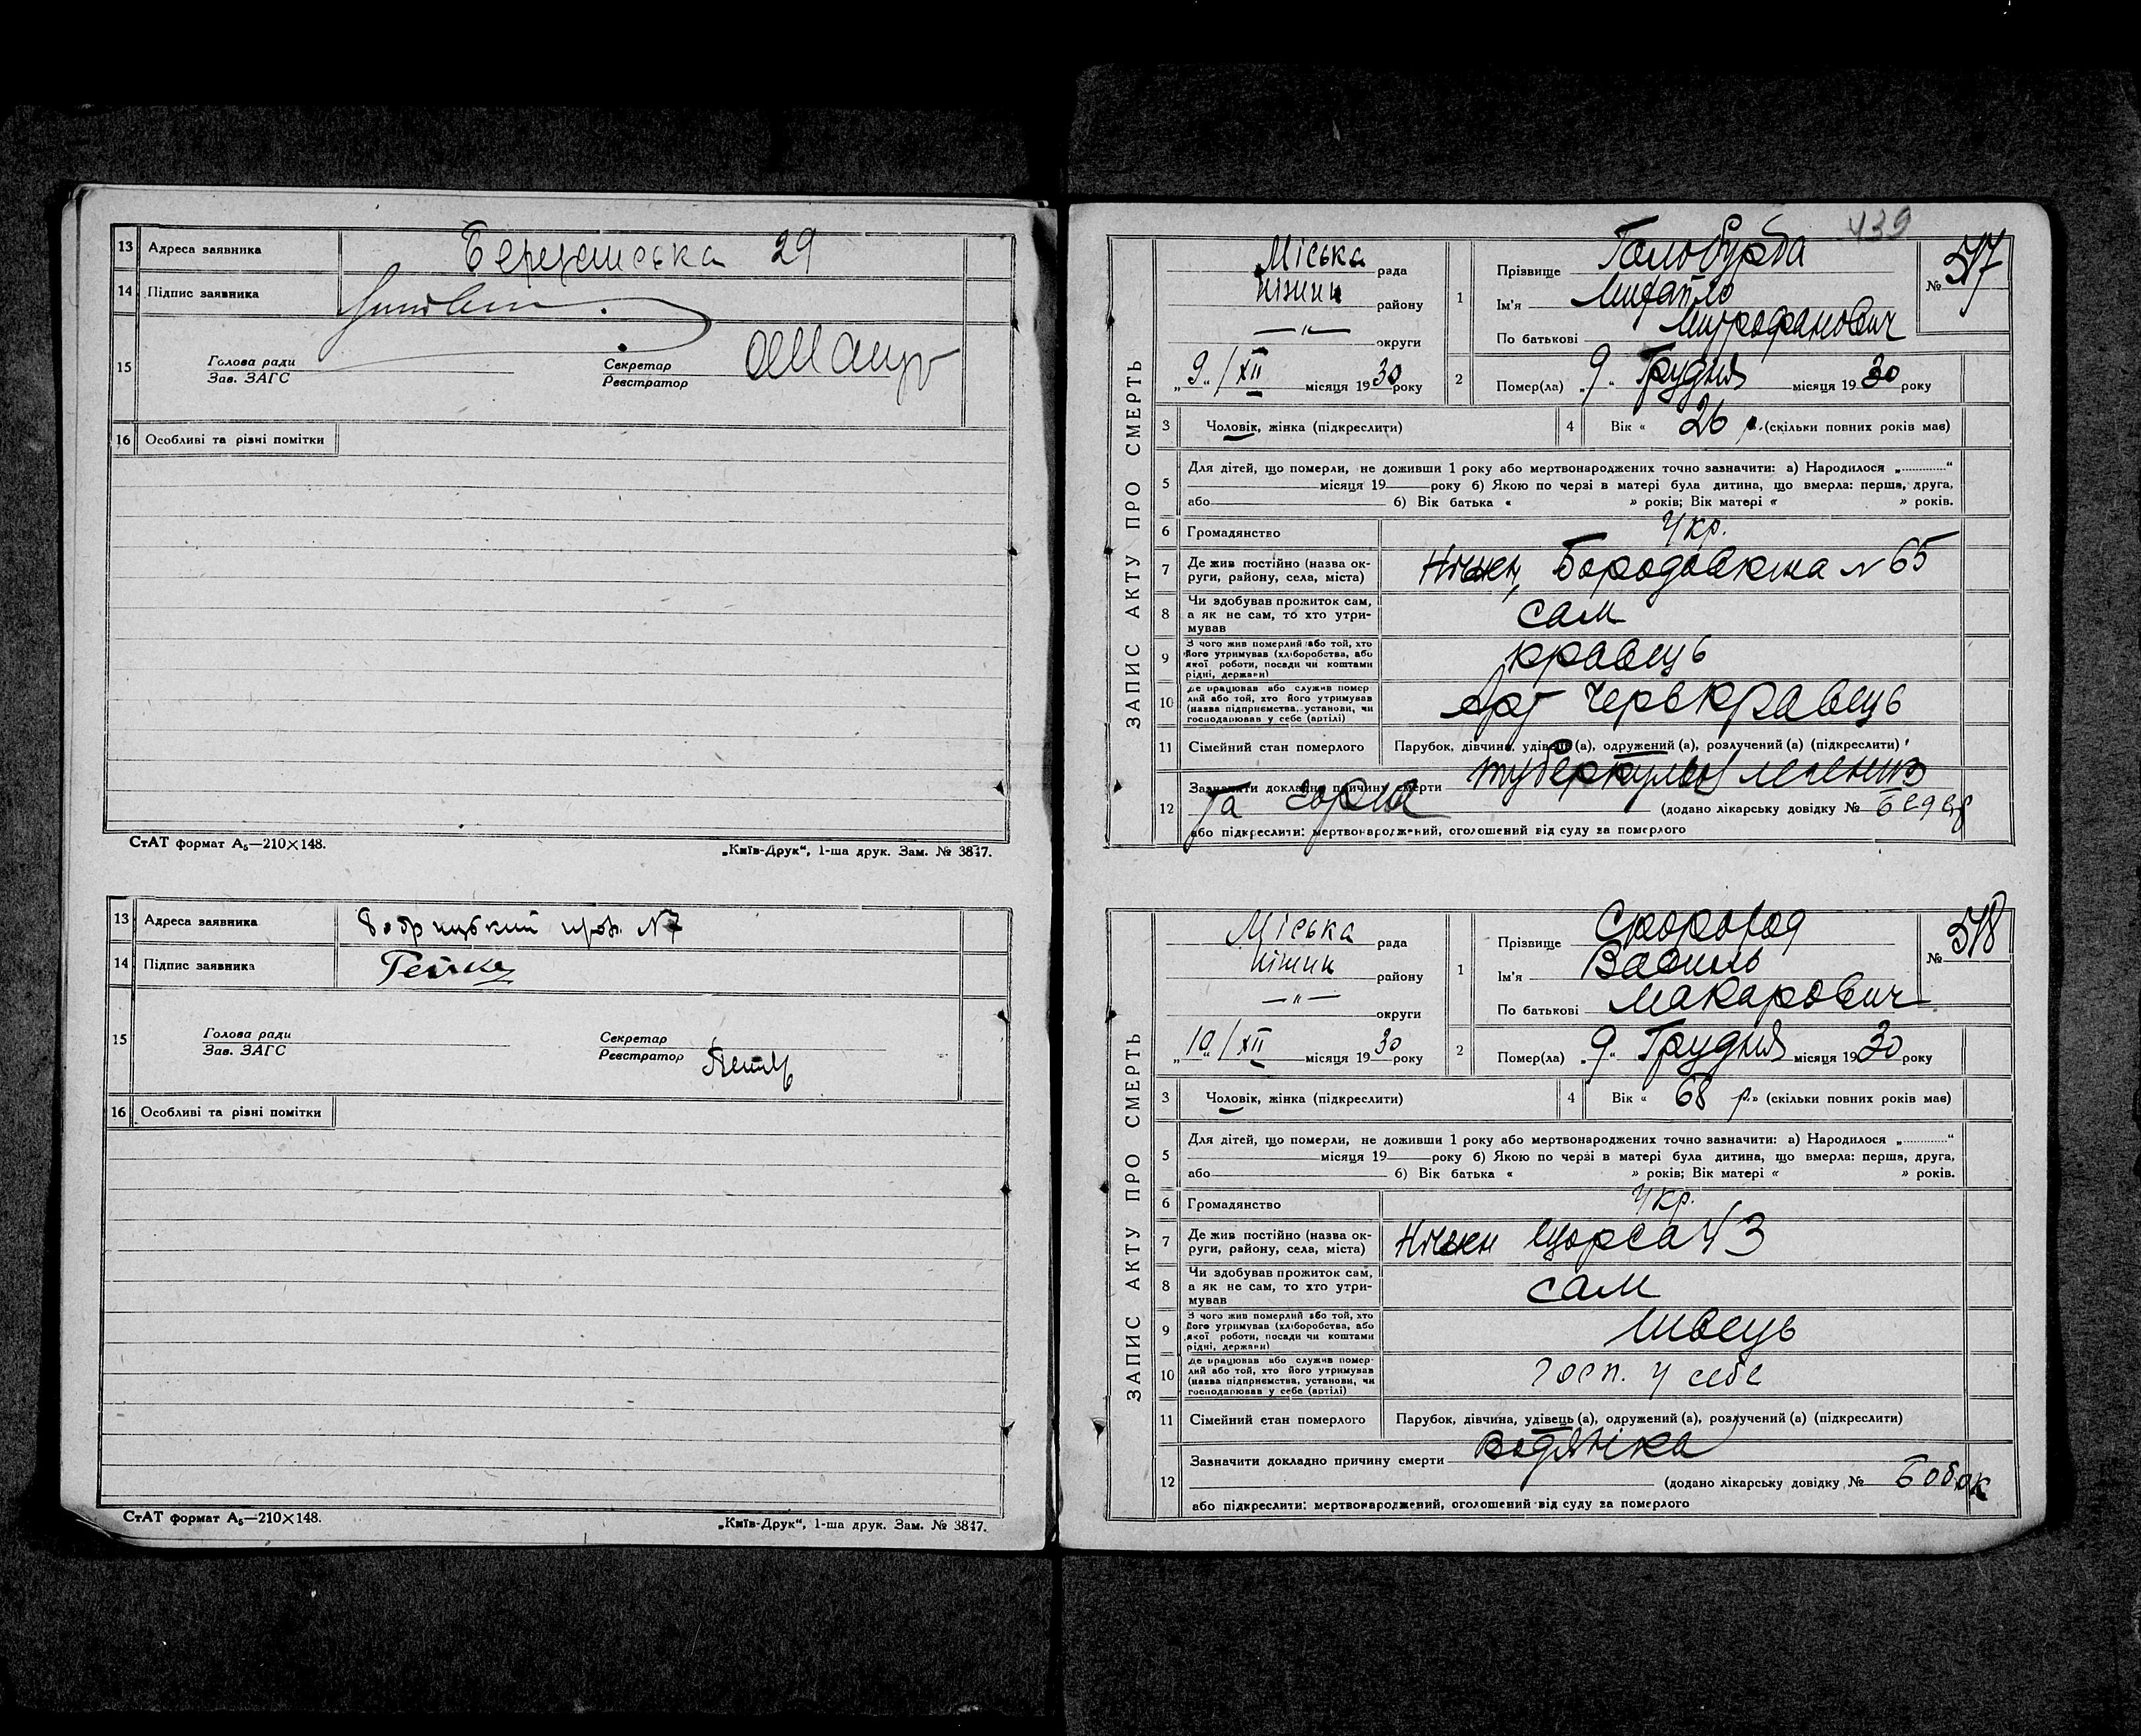 13 Адреса заявника Березанська 29
14 Підпис заявника
15 Голова ради Зав. ЗАГС Секретар Реєстратор
16 Особливі та різні помітки
СтАТ формат А₅—210×148. „Київ-Друк“, 1-ша друк. Зам. № 3847.
13 Адреса заявника №7
14 Підпис заявника
15 Голова ради Зав. ЗАГС Секретар Реєстратор
16 Особливі та різні помітки
СтАТ формат А₅—210×148. „Київ-Друк“, 1-ша друк. Зам. № 3847.
439
ЗАПИС АКТУ ПРО СМЕРТЬ
Міська рада
Ніжин району
—„— округи
„9“/XII місяця 1930 року
1 Прізвище Голобурда
Ім'я Михайло
По батькові Митрофанович
№ 517
2 Помер(ла) „9“ Грудня місяця 1930 року
3 Чоловік, жінка (підкреслити)
4 Вік « 26 р. (скільки повних років має)
5 Для дітей, що померли, не доживши 1 року або мертвонароджених точно зазначити: а) Народилося „............“
місяця 19 року б) Якою по черзі в матері була дитина, що вмерла: перша, друга,
або б) Вік батька « » років; Вік матері « » років.
6 Громадянство Укр.
7 Де жив постійно (назва ок-
руги, району, села, міста) Ніжен, №65
8 Чи здобував прожиток сам,
а як не сам, то хто утри-
мував сам
9 З чого жив померлий або той, хто
його утримував (хліборобства, або
якої роботи, посади чи коштами
рідні, держави) кравець
10 Де працював або служив помер-
лий або той, хто його утримував
(назва підприємства, установи, чи
господарював у себе (артілі) Арт Червкравець
11 Сімейний стан померлого Парубок, дівчина, удівець (а), одружений (а), розлучений (а) (підкреслити)
12 Зазначити докладно причину смерти туберкульоз легенів
та горла (додано лікарську довідку №
або підкреслити: мертвонароджений, оголошений від суду за померлого
ЗАПИС АКТУ ПРО СМЕРТЬ
Міська рада
Ніжин району
—„— округи
„10“/XII місяця 1930 року
1 Прізвище Скорород
Ім'я Василь
По батькові Макарович
№ 518
2 Помер(ла) „9“ Грудня місяця 1930 року
3 Чоловік, жінка (підкреслити)
4 Вік « 68 р.» (скільки повних років має)
5 Для дітей, що померли, не доживши 1 року або мертвонароджених точно зазначити: а) Народилося „............“
місяця 19 року б) Якою по черзі в матері була дитина, що вмерла: перша, друга,
або б) Вік батька « » років; Вік матері « » років.
6 Громадянство Укр.
7 Де жив постійно (назва ок-
руги, району, села, міста) Ніжен Щорса 43
8 Чи здобував прожиток сам,
а як не сам, то хто утри-
мував сам
9 З чого жив померлий або той, хто
його утримував (хліборобства, або
якої роботи, посади чи коштами
рідні, держави) швець
10 Де працював або служив помер-
лий або той, хто його утримував
(назва підприємства, установи, чи
господарював у себе (артілі) госп. у себе
11 Сімейний стан померлого Парубок, дівчина, удівець (а), одружений (а), розлучений (а) (підкреслити)
12 Зазначити докладно причину смерти водянка
(додано лікарську довідку №
або підкреслити: мертвонароджений, оголошений від суду за померлого